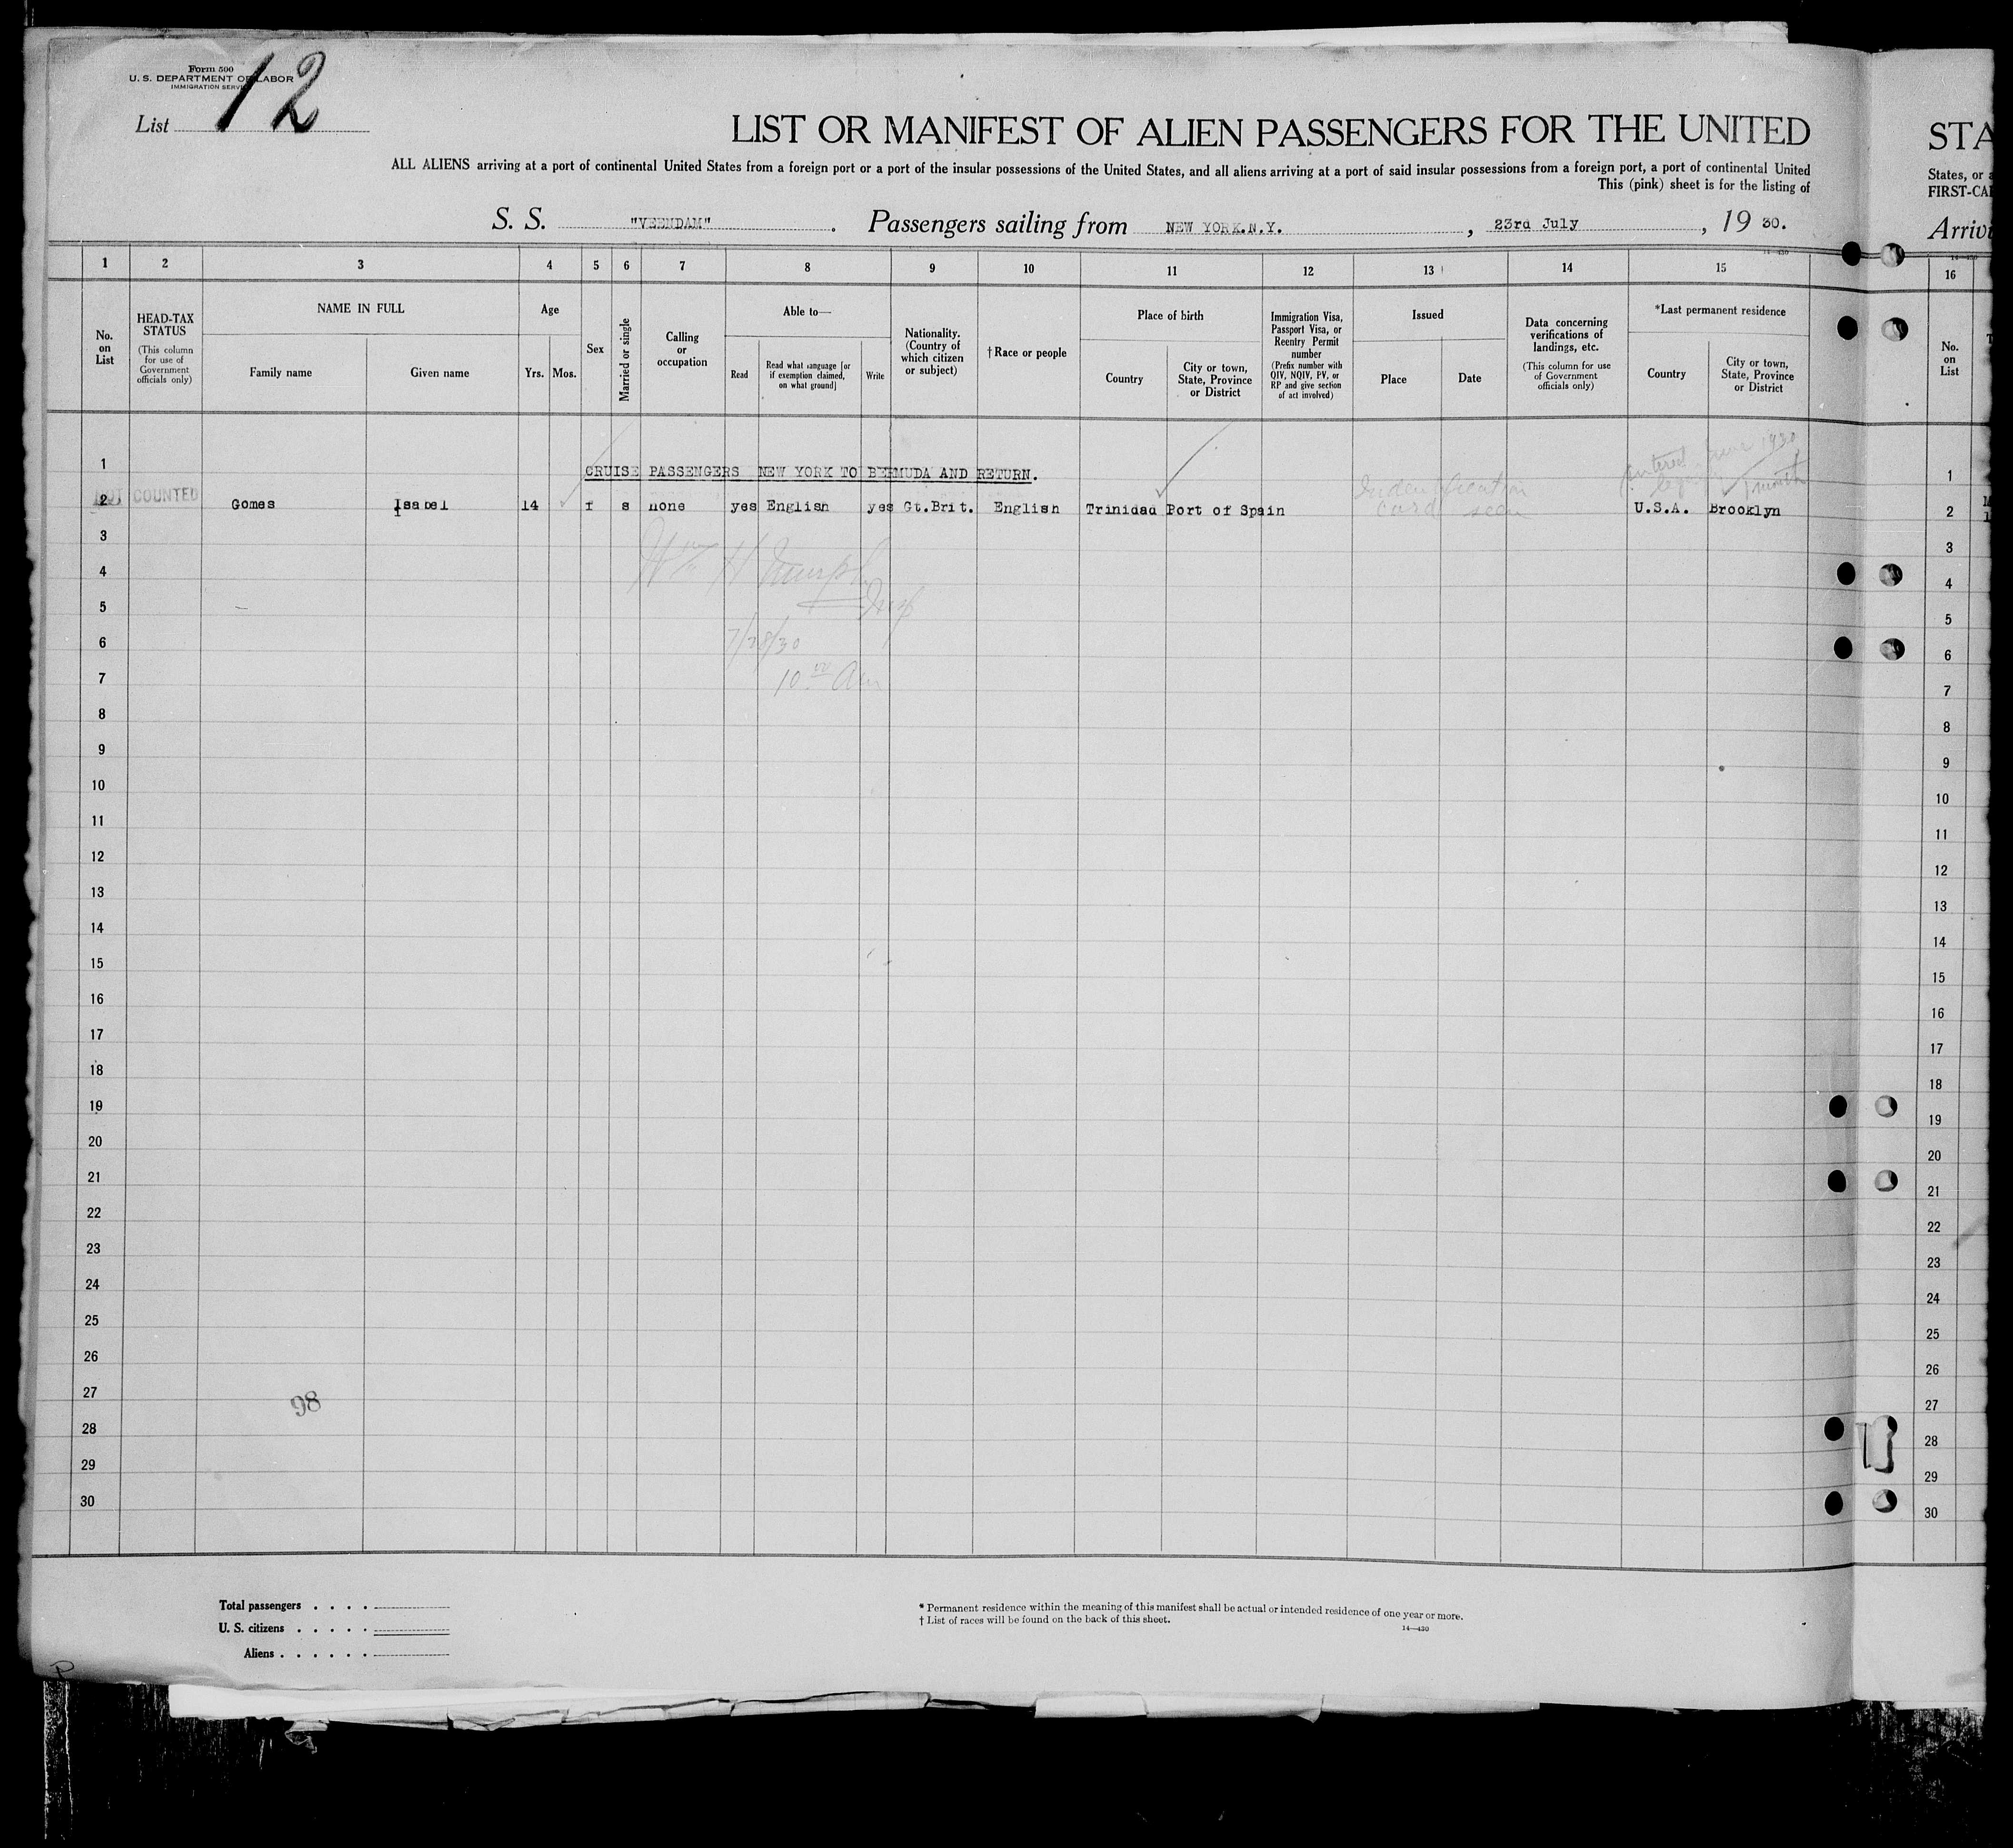 Form 500
U. S. DEPARTMENT OF LABOR
IMMIGRATION SERVICE
List 12
LIST OR MANIFEST OF ALIEN PASSENGERS FOR THE UNITED
STA
ALL ALIENS arriving at a port of continental United States from a foreign port or a port of the insular possessions of the United States, and all aliens arriving at a port of said insular possessions from a foreign port, a port of continental United
States, or a
This (pink) sheet is for the listing of
FIRST-CA
S. S. "VEENDAM". Passengers sailing from NEW YORK.N.Y. , 23rd July , 19 30.
Arrivi
14—430
1 2 3 4 5 6 7 8 9 10 11 12 13 14 15 16
No. on List
HEAD-TAX STATUS
(This column for use of Government officials only)
NAME IN FULL
Family name
Given name
Age
Yrs. Mos.
Sex
Married or single
Calling or occupation
Able to—
Read
Read what language [or if exemption claimed, on what ground]
Write
Nationality. (Country of which citizen or subject)
†Race or people
Place of birth
Country
City or town, State, Province or District
Immigration Visa, Passport Visa, or Reentry Permit number
(Prefix number with QIV, NQIV, PV, or RP and give section of act involved)
Issued
Place
Date
Data concerning verifications of landings, etc.
(This column for use of Government officials only)
*Last permanent residence
Country
City or town, State, Province or District
No. on List
entered June 1930
1 CRUISE PASSENGERS NEW YORK TO BERMUDA AND RETURN. 1
1 month
NOT COUNTED
Identification
card seen
2 Gomes Isabel 14 f s none yes English yes Gt.Brit. English Trinidad Port of Spain U.S.A. Brooklyn 2
3 3
Wm H Murphy
4 4
Insp
5 5
7/28/30
6 6
10 00 Am
7 7
8 8
9 9
10 10
11 11
12 12
13 13
14 14
15 15
16 16
17 17
18 18
19 19
20 20
21 21
22 22
23 23
24 24
25 25
26 26
27 27
98
28 28
29 29
30 30
Total passengers . . . .
U. S. citizens . . . . .
Aliens . . . . . .
* Permanent residence within the meaning of this manifest shall be actual or intended residence of one year or more.
† List of races will be found on the back of this sheet.
14—430